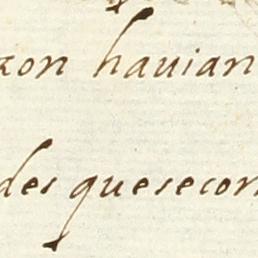 zon hauian
des quesecon